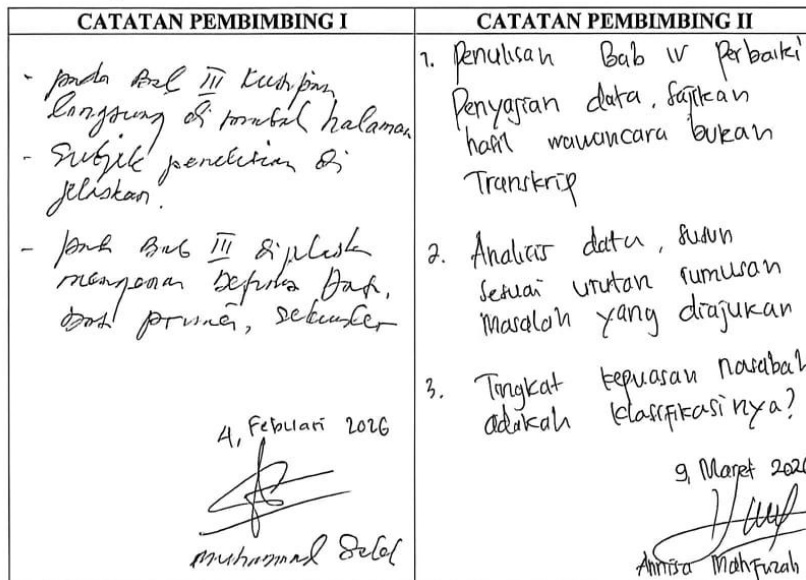 CATATAN PEMBIMBING I
- pada Bab III Kutipan
langsung di tambah halaman
- Subjek penelitian di
jelaskan.
- pada Bab III dijelaskan
mengenai Data,
Data primer, sekunder
4, Februari 2026
Muhammad
CATATAN PEMBIMBING II
1. Penulisan Bab IV Perbaiki
Penyajian data, Sajikan
hasil wawancara bukan
Transkrip
2. Analisis data, susun
Sesuai urutan rumusan
Masalah yang diajukan
3. Tingkat kepuasan nasabah
adakah klasifikasinya?
9, Maret 2026
Annisa Mahfuzah